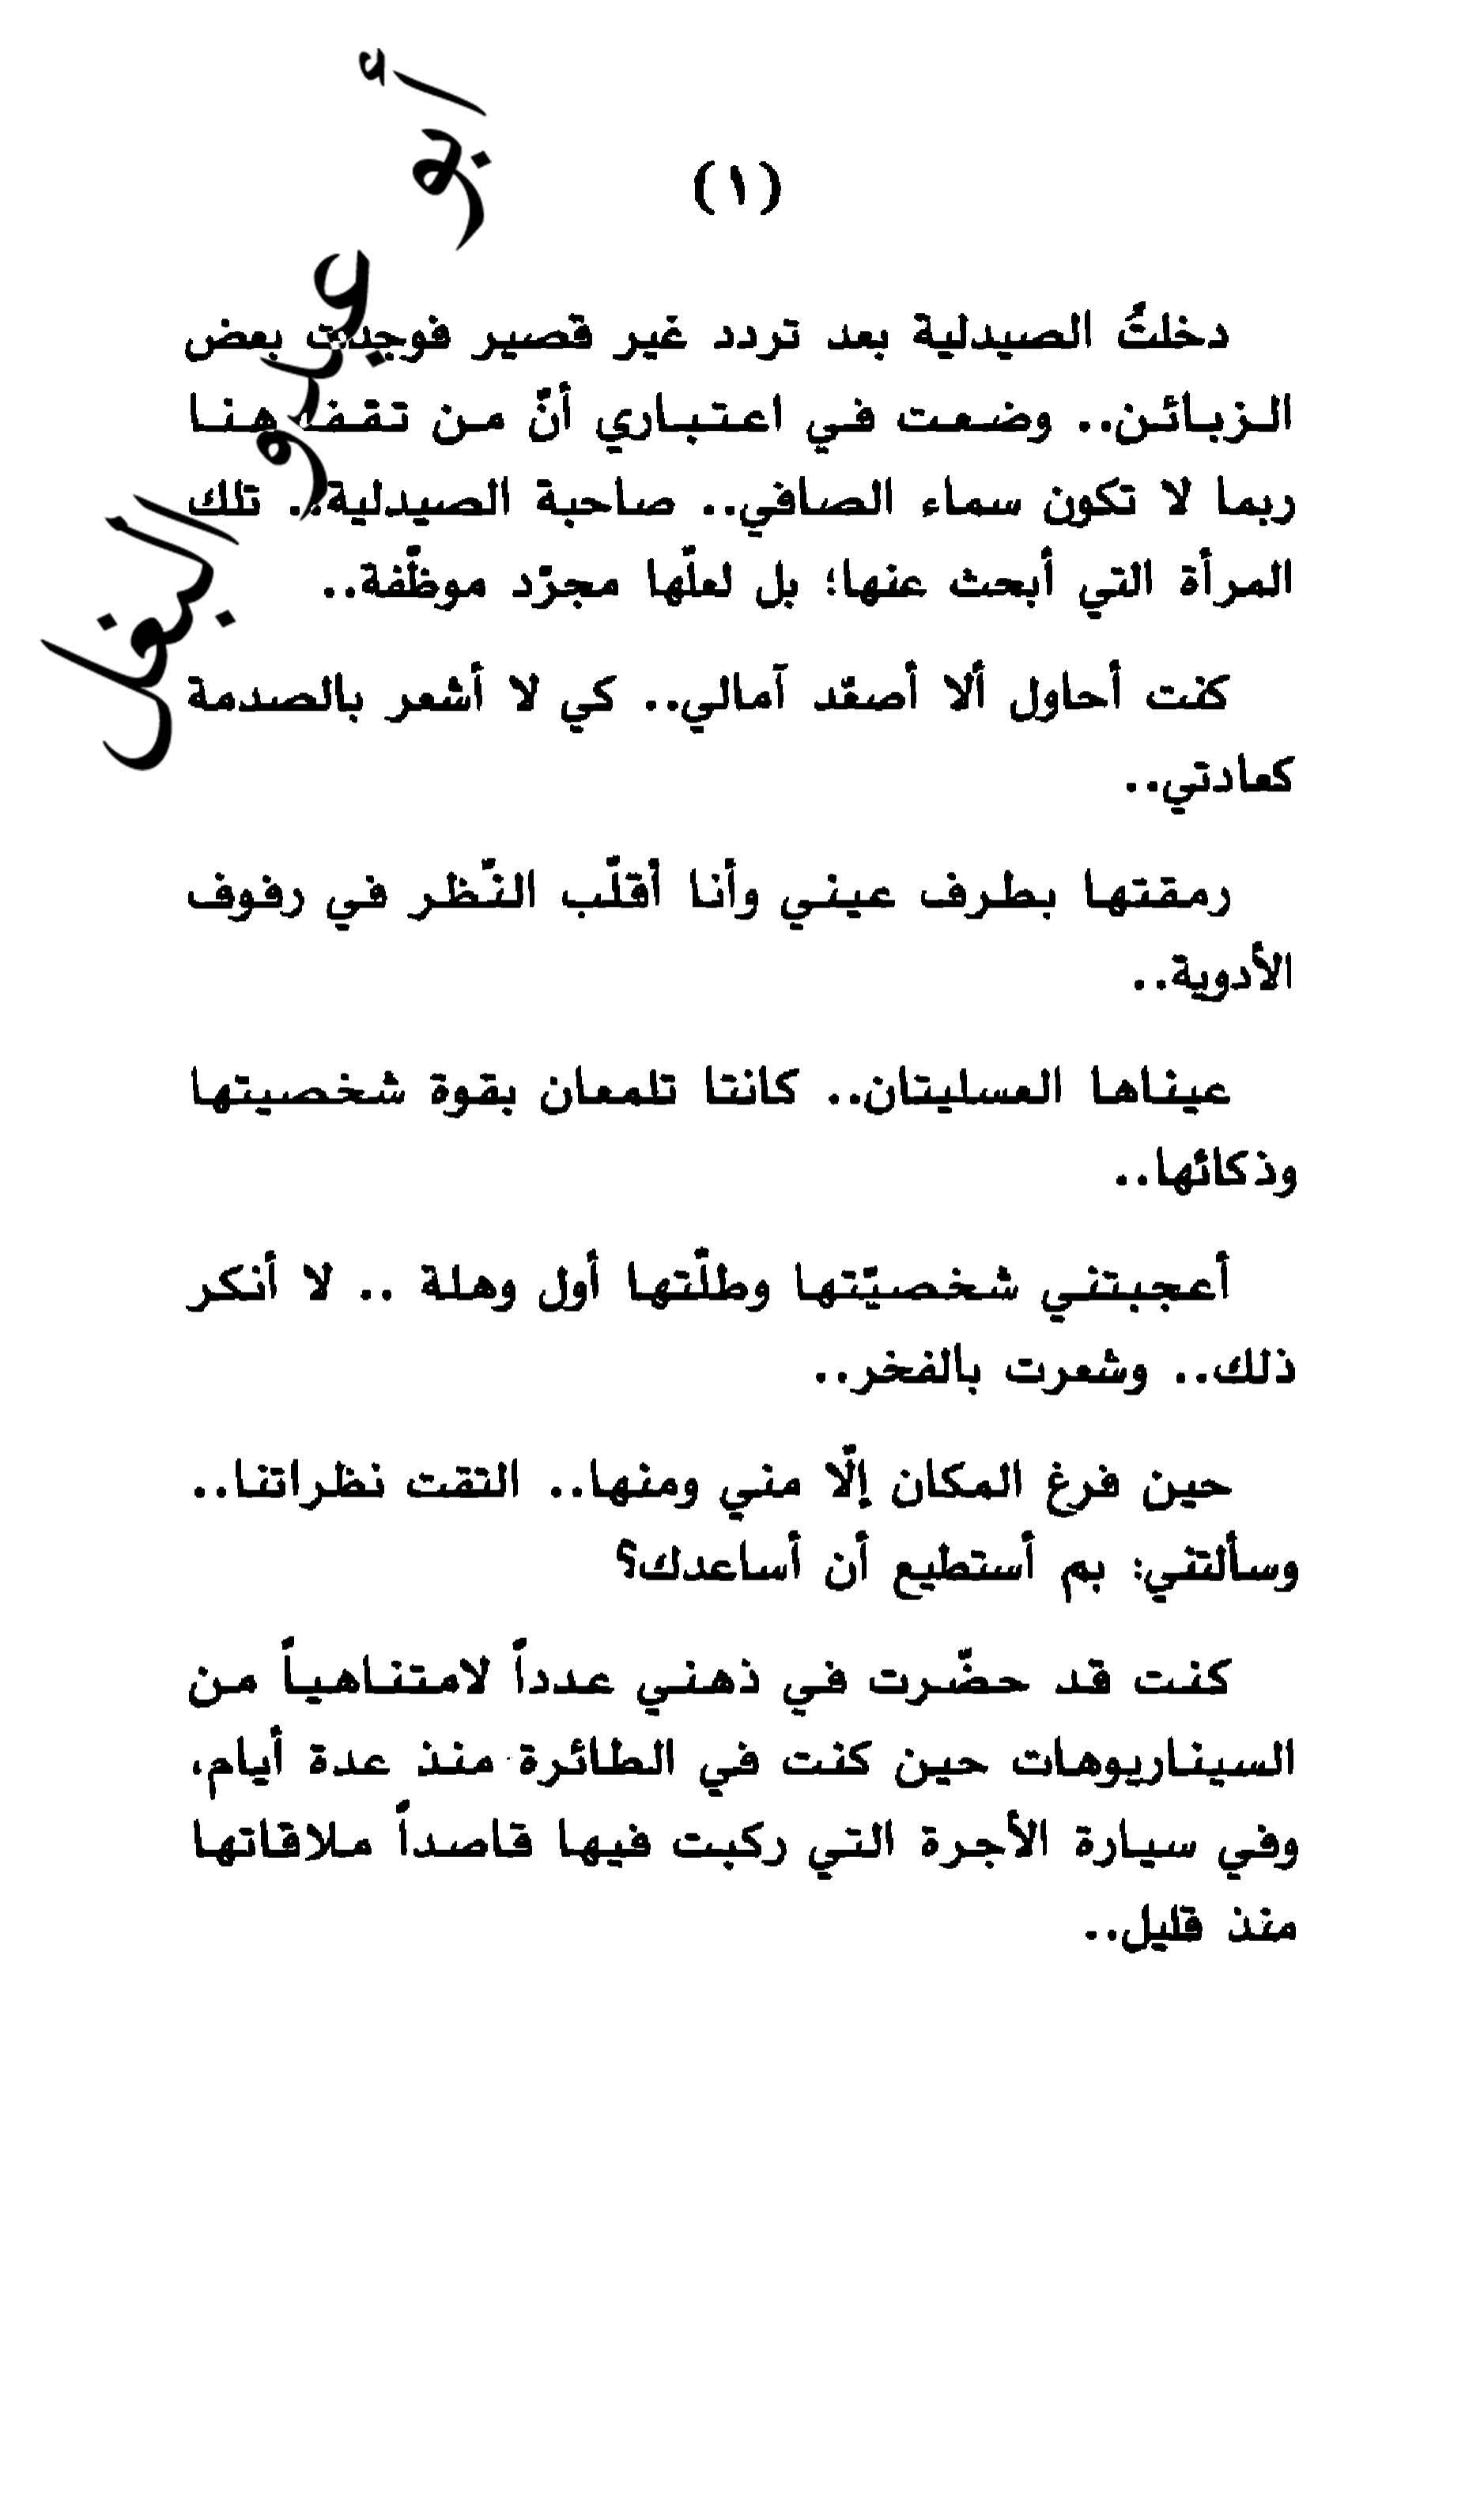 أبو عبدو البغل
(١)
دخلتُ الصيدلية بعد تردد غير قصير فوجدت بعض
الزبائن.. وضعت في اعتباري أنَّ من تقف هنا
ربما لا تكون سماء الصافي.. صاحبة الصيدلية.. تلك
المرأة التي أبحث عنها؛ بل لعلّها مجرّد موظّفة..
كنت أحاول ألا أصعّد آمالي.. كي لا أشعر بالصدمة
كعادتي..
رمقتها بطرف عيني وأنا أقلّب النّظر في رفوف
الأدوية..
عيناها العسليتان.. كانتا تلمعان بقوة شخصيتها
وذكائها..
أعجبتني شخصيّتها وطلّتها أول وهلة .. لا أنكر
ذلك.. وشعرت بالفخر..
حين فرغ المكان إلّا مني ومنها.. التقت نظراتنا..
وسألتني: بم أستطيع أن أساعدك؟
كنت قد حضّرت في ذهني عدداً لامتناهياً من
السيناريوهات حين كنت في الطائرة منذ عدة أيام،
وفي سيارة الأجرة التي ركبت فيها قاصداً ملاقاتها
منذ قليل..